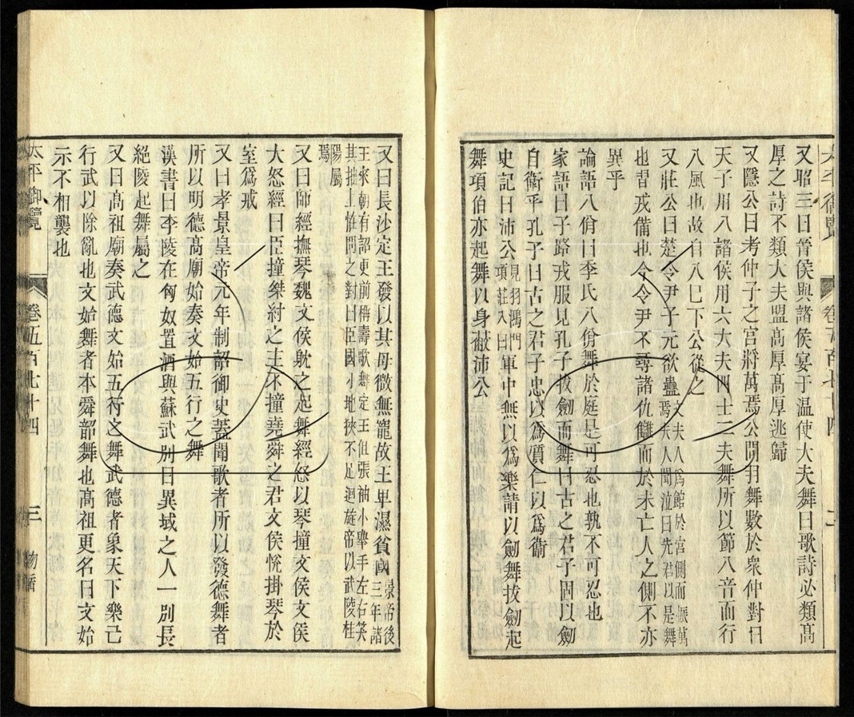 又昭三曰晉侯與諸侯宴于温使大夫舞曰歌詩必類高
厚之詩不類大夫盟高厚高厚逃歸
又隱公曰考仲子之宮將萬焉公問羽舞數於衆仲對曰
天子用八諸侯用六大夫四士二夫舞所以節八音而行
八風也故自八巳下公從之
又莊公曰楚令尹子元欲蠱文夫人爲館於宮側而振萬焉夫人聞泣曰先君以是舞
也習戎備也今令尹不尋諸仇讎而於未亡人之側不亦
異乎
論語八佾曰季氏八佾舞於庭是可忍也孰不可忍也
家語曰子路戎服見孔子拔劒而舞曰古之君子固以劒
自衞乎孔子曰古之君子忠以爲質仁以爲衞
史記曰沛公見羽鴻門項莊入曰軍中無以爲樂請以劒舞拔劒起
舞項伯亦起舞以身蔽沛公
太平御覽
卷五百七十四
又曰長沙定王發以其母微無寵故王卑濕貧國景帝後三年諸
王來朝有詔更前稱壽歌舞定王但張袖小舉手左右笑
其拙上恠問之對曰臣國小地狹不足迴旋帝以武陵桂
陽屬
焉
又曰師經撫琴魏文侯耽之起舞經怒以琴撞文侯文侯
大怒經曰臣撞桀紂之主不撞堯舜之君文侯恱掛琴於
室爲戒
又曰孝景皇帝元年制詔御史蓋聞歌者所以發德舞者
所以明德高廟始奏文始五行之舞
漢書曰李陵在匈奴置酒與蘇武別曰異域之人一別長
絶陵起舞屬之
又曰高祖廟奏武德文始五行之舞武德者象天下樂己
行武以除亂也文始舞者本舜韶舞也高祖更名曰文始
示不相襲也
太平御覽
卷五百七十四
三